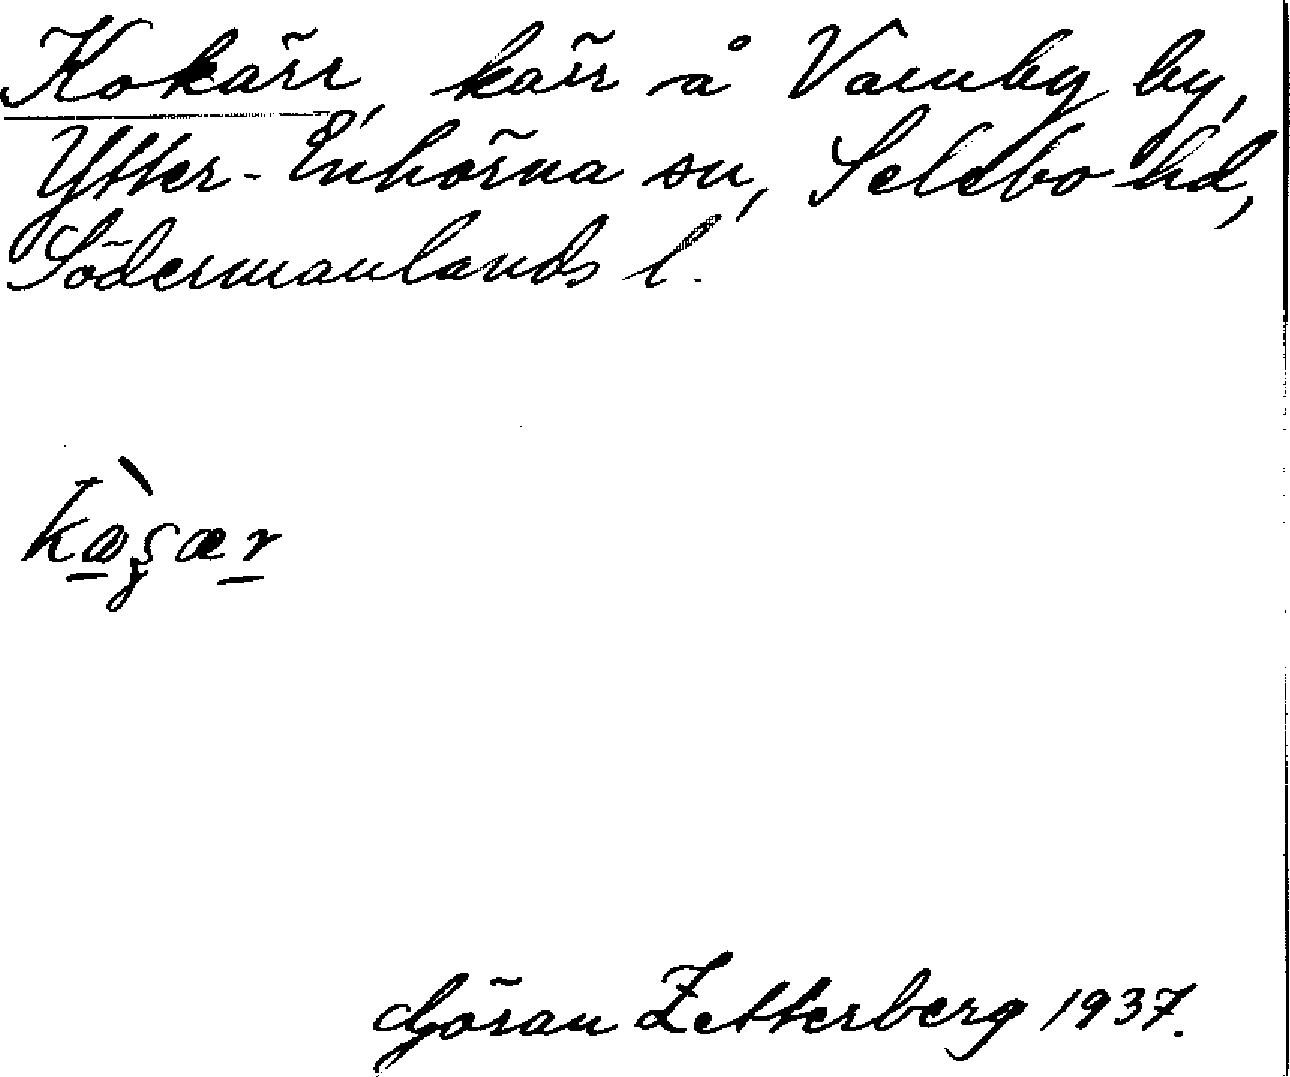 Kokärr, kärr å Vamby by,
Ytter-Enhörna sn, Selebo hd,
Södermanlands l.
Göran Zetterberg 1937.